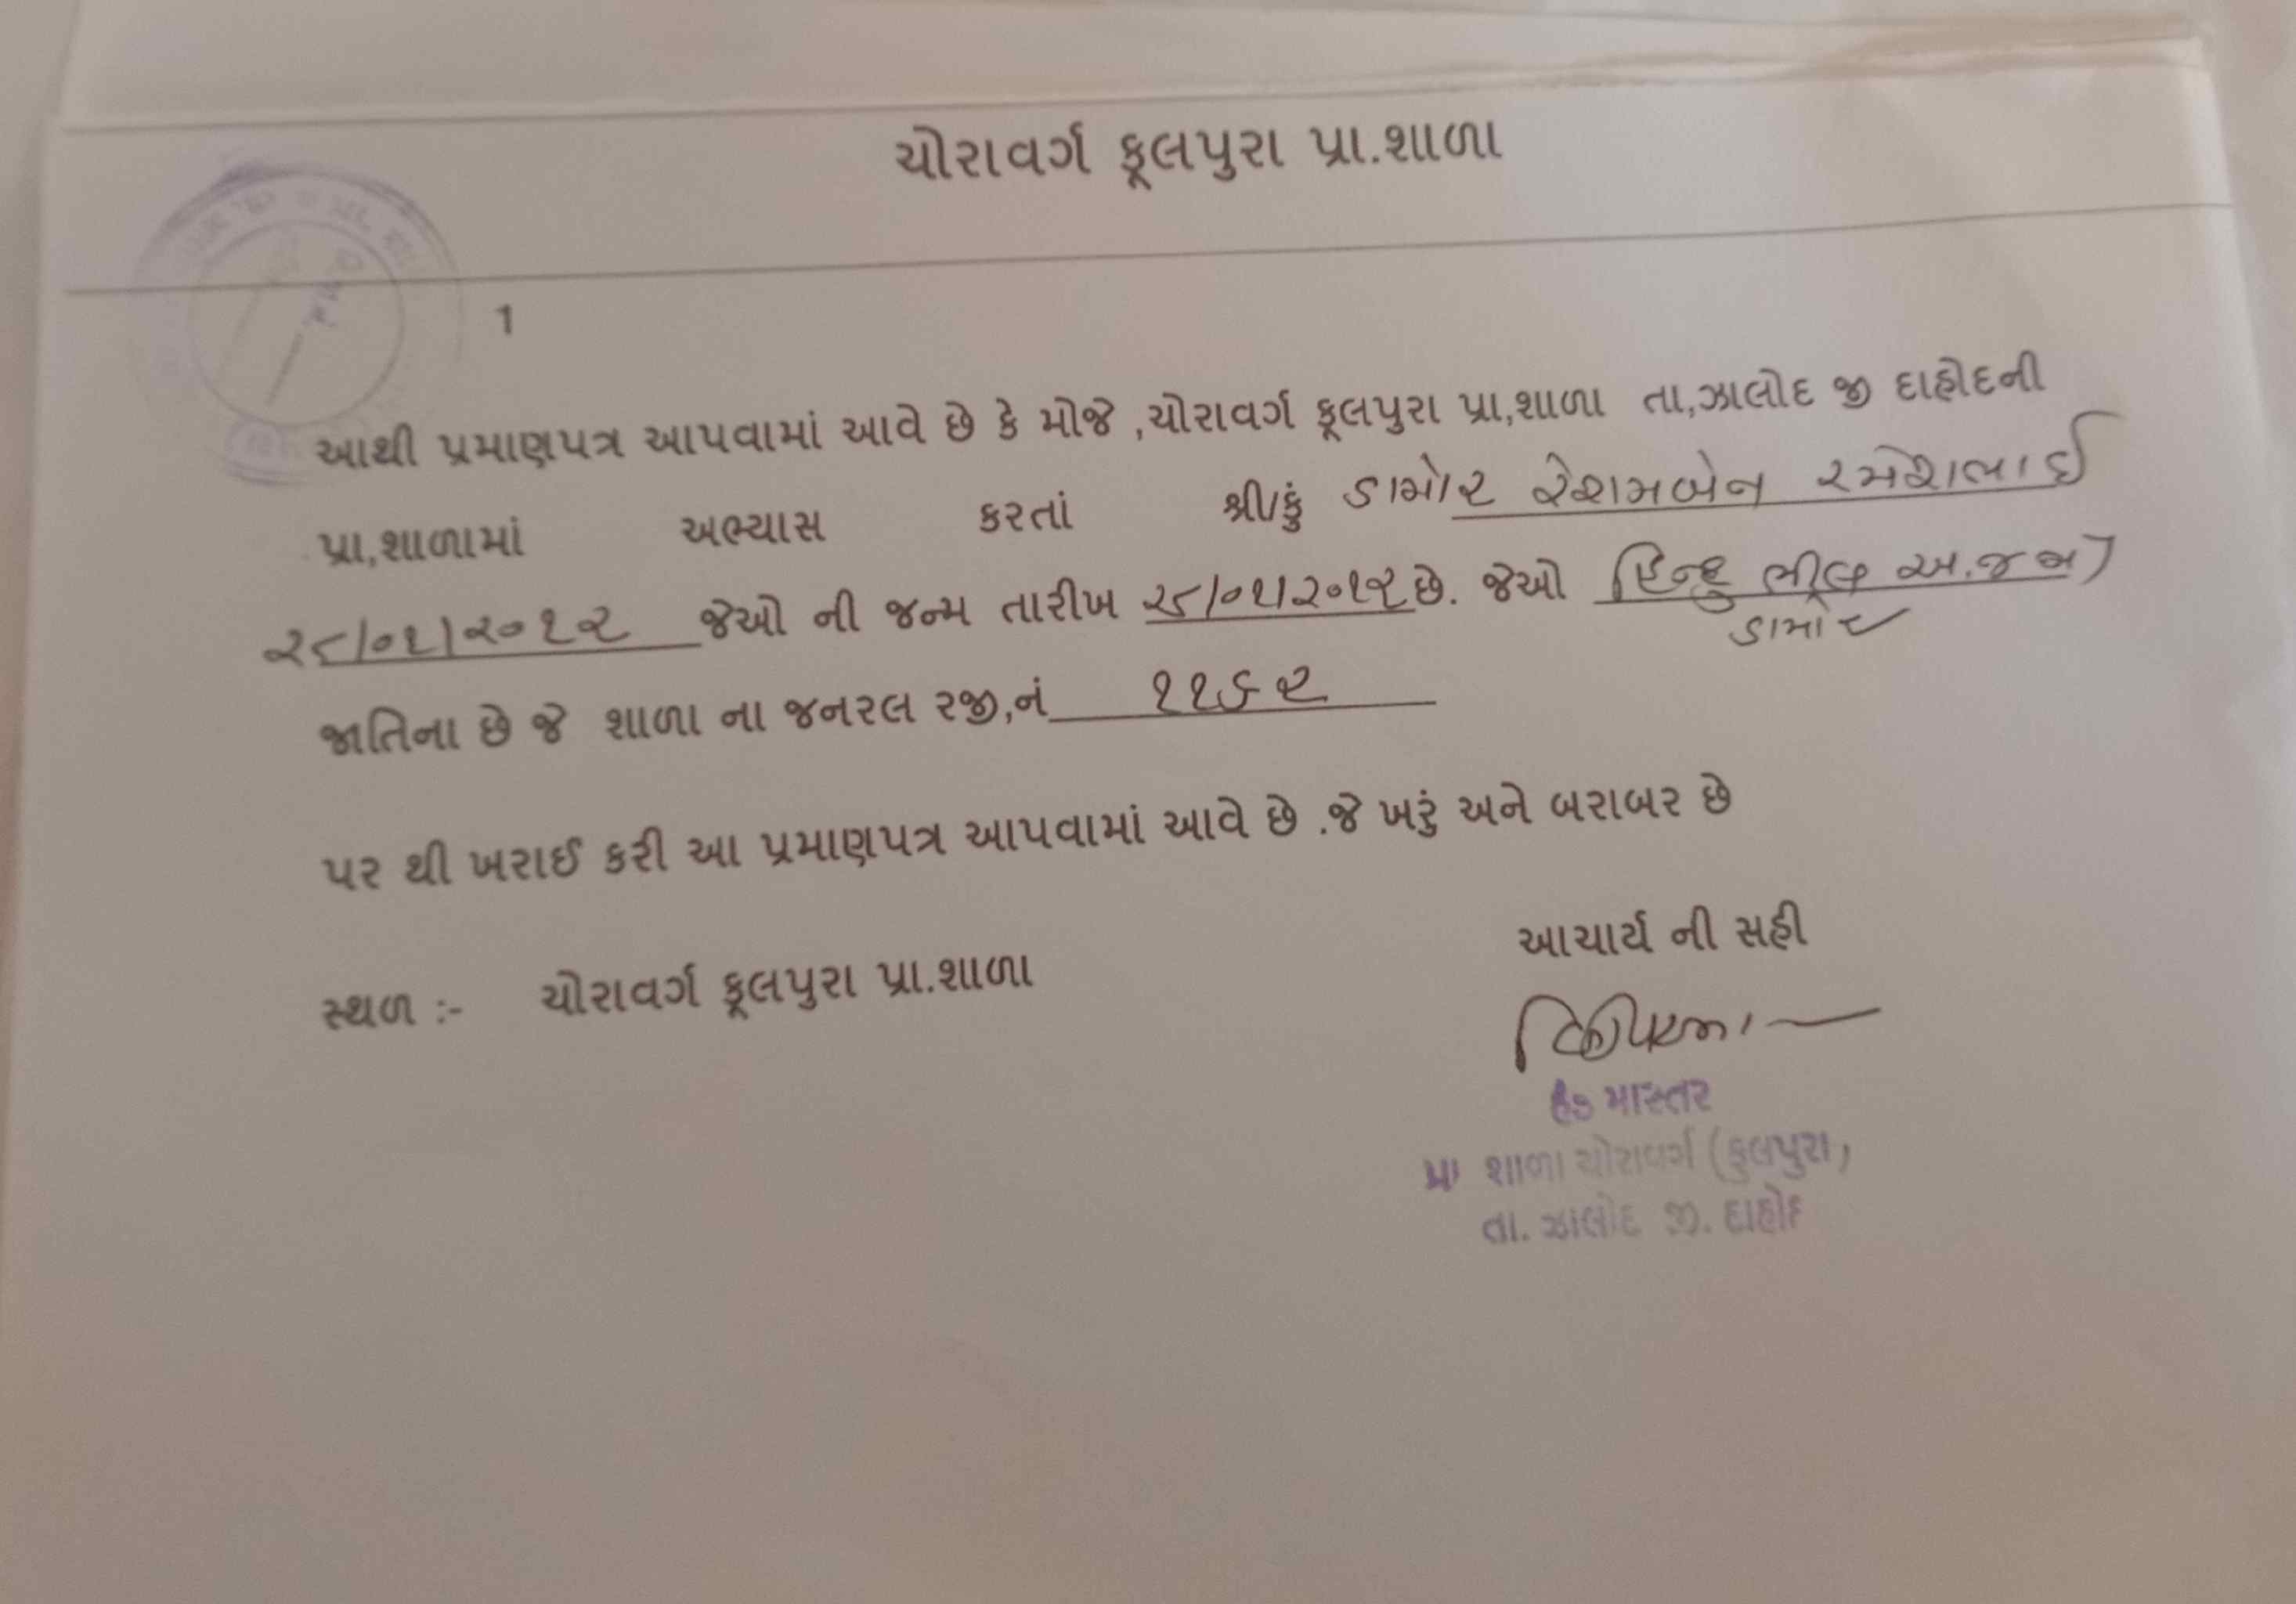 ચોરાવર્ગ ફૂલપુરા પ્રા.શાળા
1
આથી પ્રમાણપત્ર આપવામાં આવે છે કે મોજે ,ચોરાવર્ગ ફૂલપુરા પ્રા,શાળા તા,ઝાલોદ જી દાહોદની
પ્રા,શાળામાં અભ્યાસ કરતાં શ્રી/કું ડામોર રેશમબેન રમેશભાઈ
૨૮/૦૧/૨૦૧૨ જેઓ ની જન્મ તારીખ ૨૮/૦૧/૨૦૧૨ છે. જેઓ હિન્દુ ભીલ અ.જ.જા
ડામોર
જાતિના છે જે શાળા ના જનરલ રજી,નં ૧૧૬૨
પર થી ખરાઈ કરી આ પ્રમાણપત્ર આપવામાં આવે છે .જે ખરું અને બરાબર છે
આચાર્ય ની સહી
સ્થળ :- ચોરાવર્ગ ફૂલપુરા પ્રા.શાળા
હેડ માસ્તર
પ્રા શાળા ચોરાવર્ગ (ફુલપુરા)
તા. ઝાલોદ જી. દાહોદ